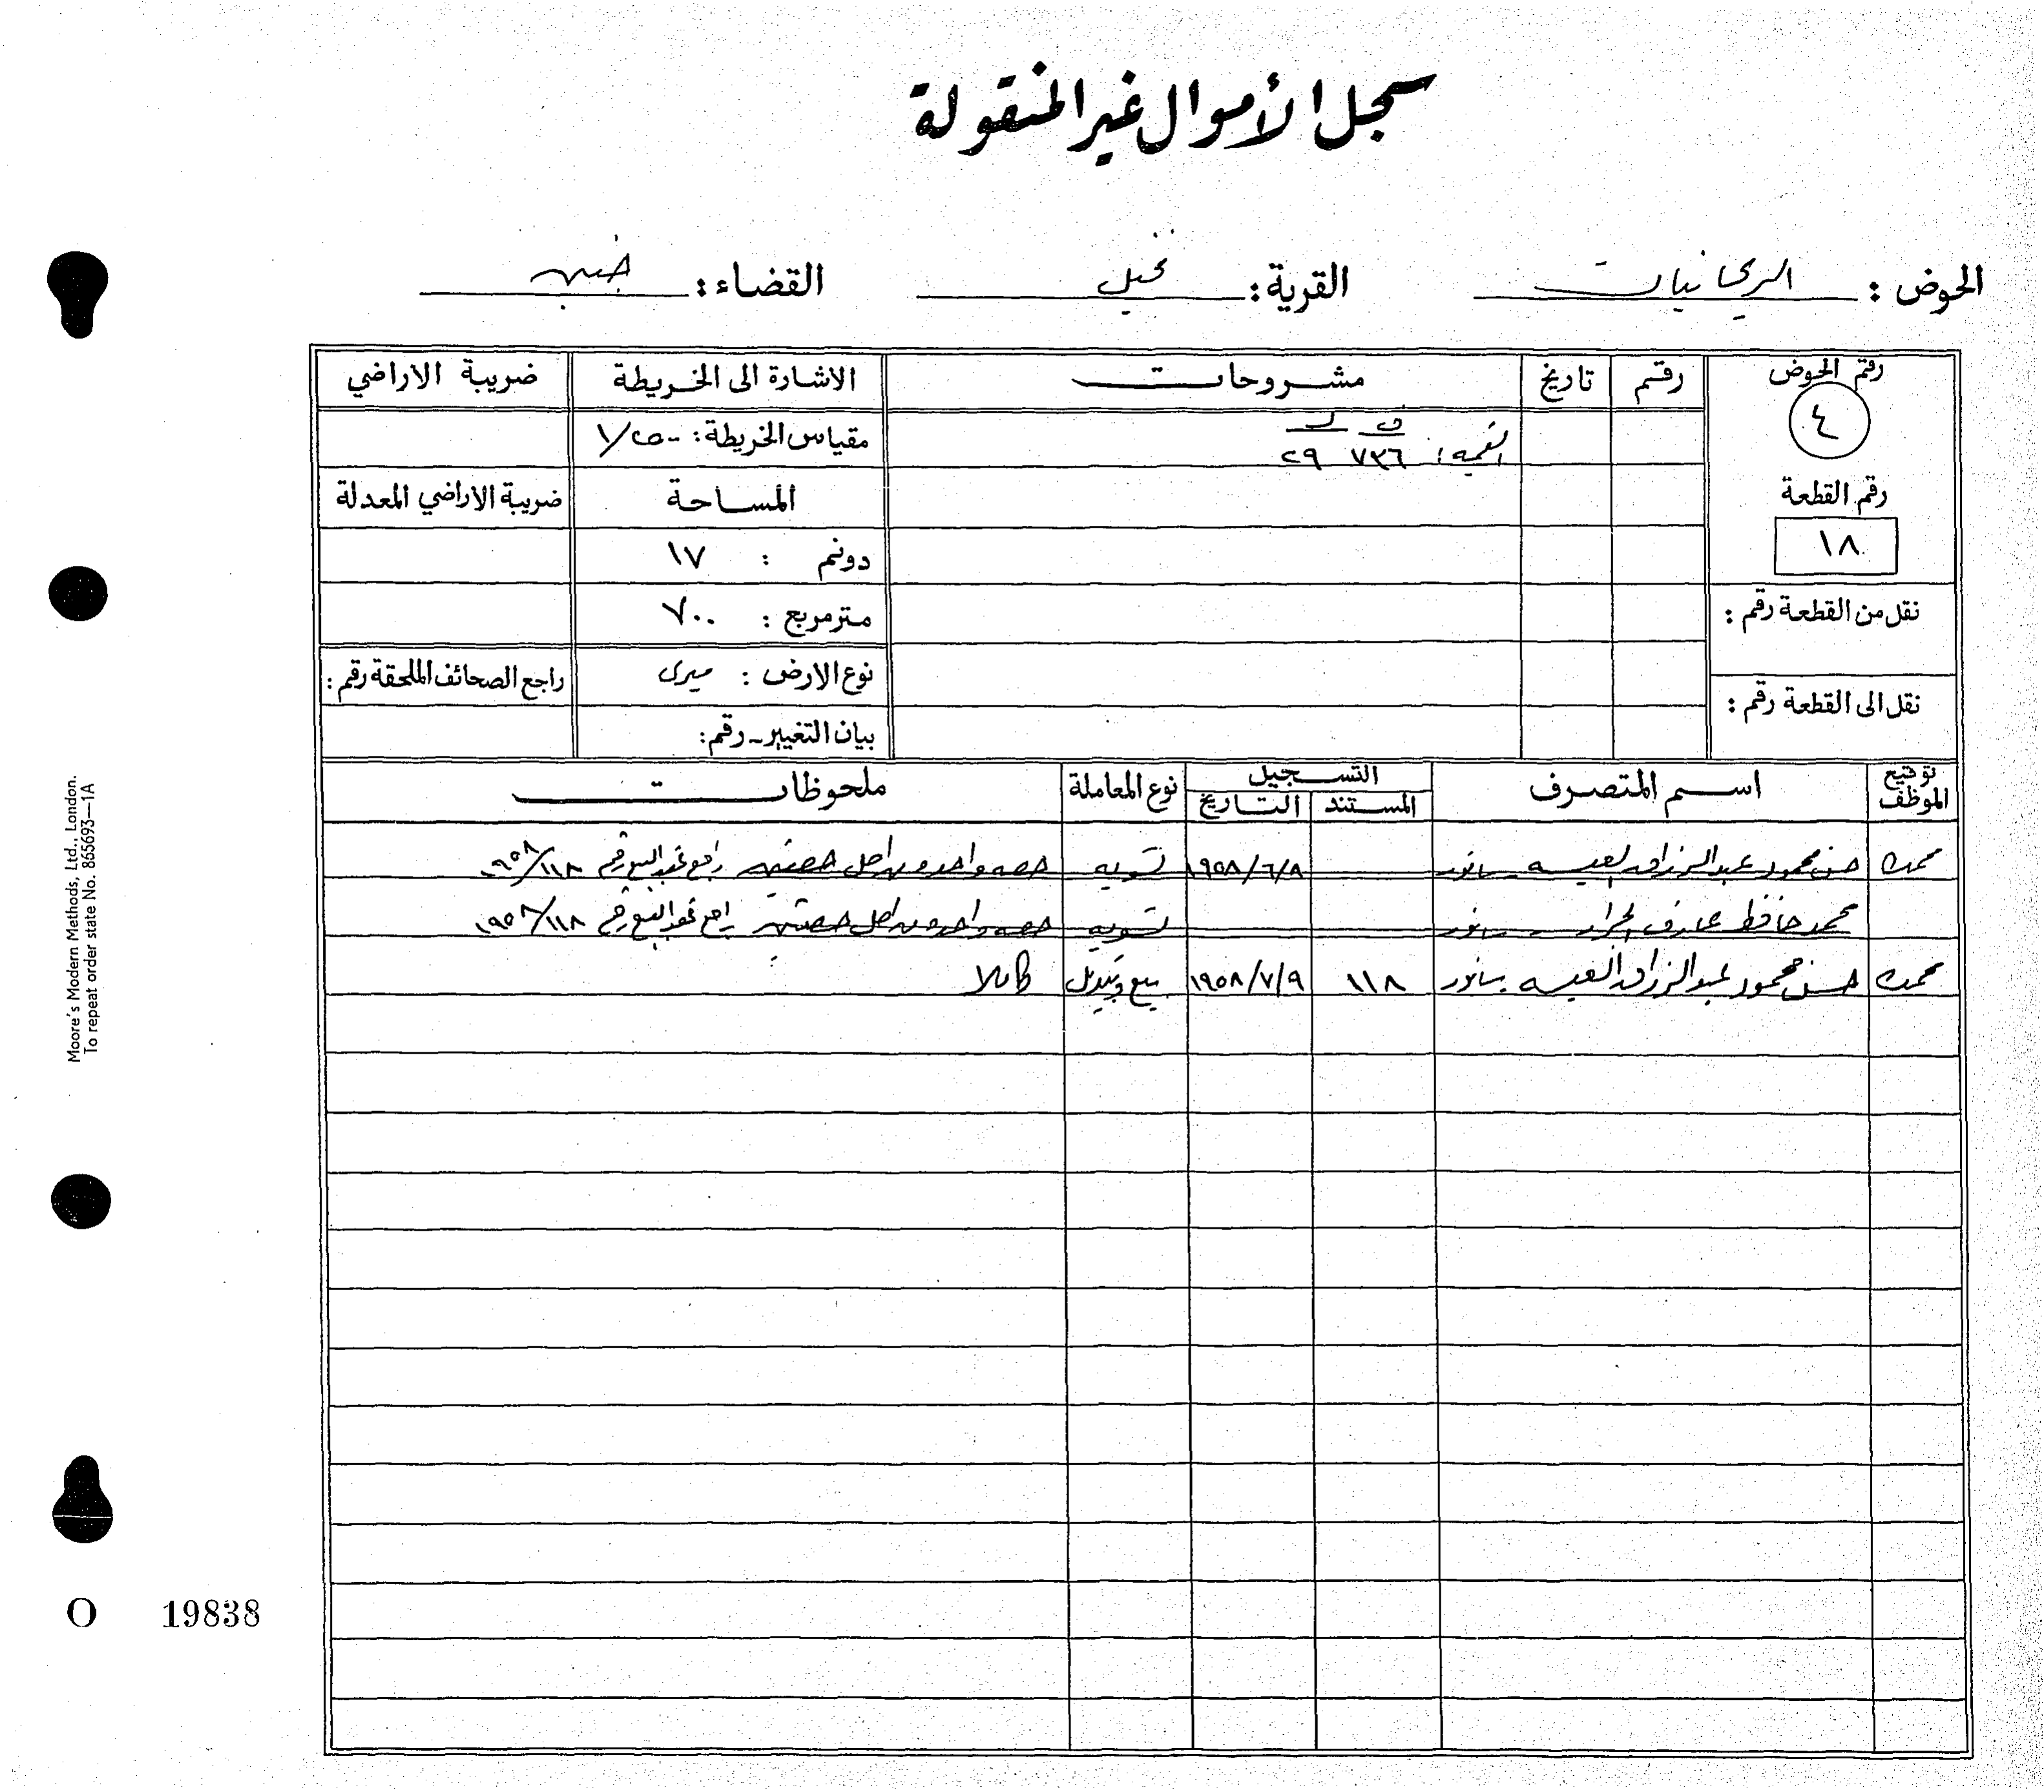 سجل الأموال غير المنقولة
الحوض : الريحانيات القرية : نخيل القضاء : جنين
رقم الحوض رقم تاريخ مشروحات الاشارة الى الخريطة ضريبة الاراضي
٤ ف د مقياس الخريطة : ١/٢٥٠٠
القيمة : ٧٣٦ ٢٩
رقم القطعة المساحة ضريبة الاراضي المعدلة
١٨ دونم : ١٧
نقل من القطعة رقم : مترمربع : ٧٠٠
نوع الارض : ميرى راجع الصحائف الملحقة رقم :
نقل الى القطعة رقم :
بيان التغيير - رقم :
توقيع الموظف اسم المتصرف التسجيل نوع المعاملة ملحوظات
المستند التاريخ
حسن محمود عبد الرزاق العيسه سانور ١٩٥٨/٦/٨ تسويه حصه واحده من اصل حصتين راجع عقد البيع رقم ١٩٥٨/١١٨
محمد حافظ عارف سانور تسويه حصه واحده من اصل حصتين راجع عقد البيع رقم ١٩٥٨/١١٨
حسن محمود عبد الرزاق العيسه سانور ١١٨ ١٩٥٨/٧/٩ بيع كاملا
Moore's Modern Methods, Ltd., London.
To repeat order state No. 865693—1A
O 19838